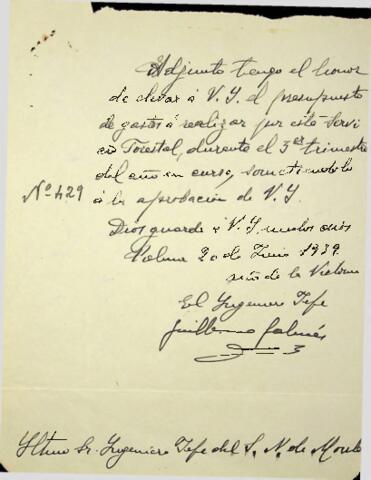 Adjunto tengo el honor
de elevar á V.I. el presupuesto
de gastos á realizar por este Servi
cio Forestal, durante el 3er trimestre
del año en curso, sometiendolo
Nº 429 á la aprobación de V.I.
Dios guarde á V.I. muchos años
Palma 20 de Junio 1939
año de la Victoria
El Ingeniero Jefe
Guillermo
Iltmo Sr. Ingeniero Jefe del S. N. de